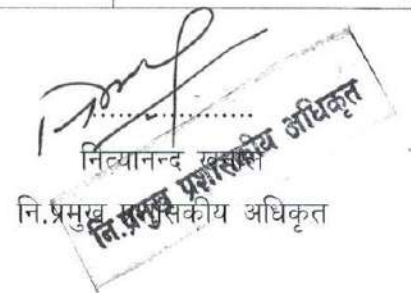 नित्यानन्द
नि.प्रमुख प्रशासकीय अधिकृत
नि.प्रमुख प्रशासकीय अधिकृत